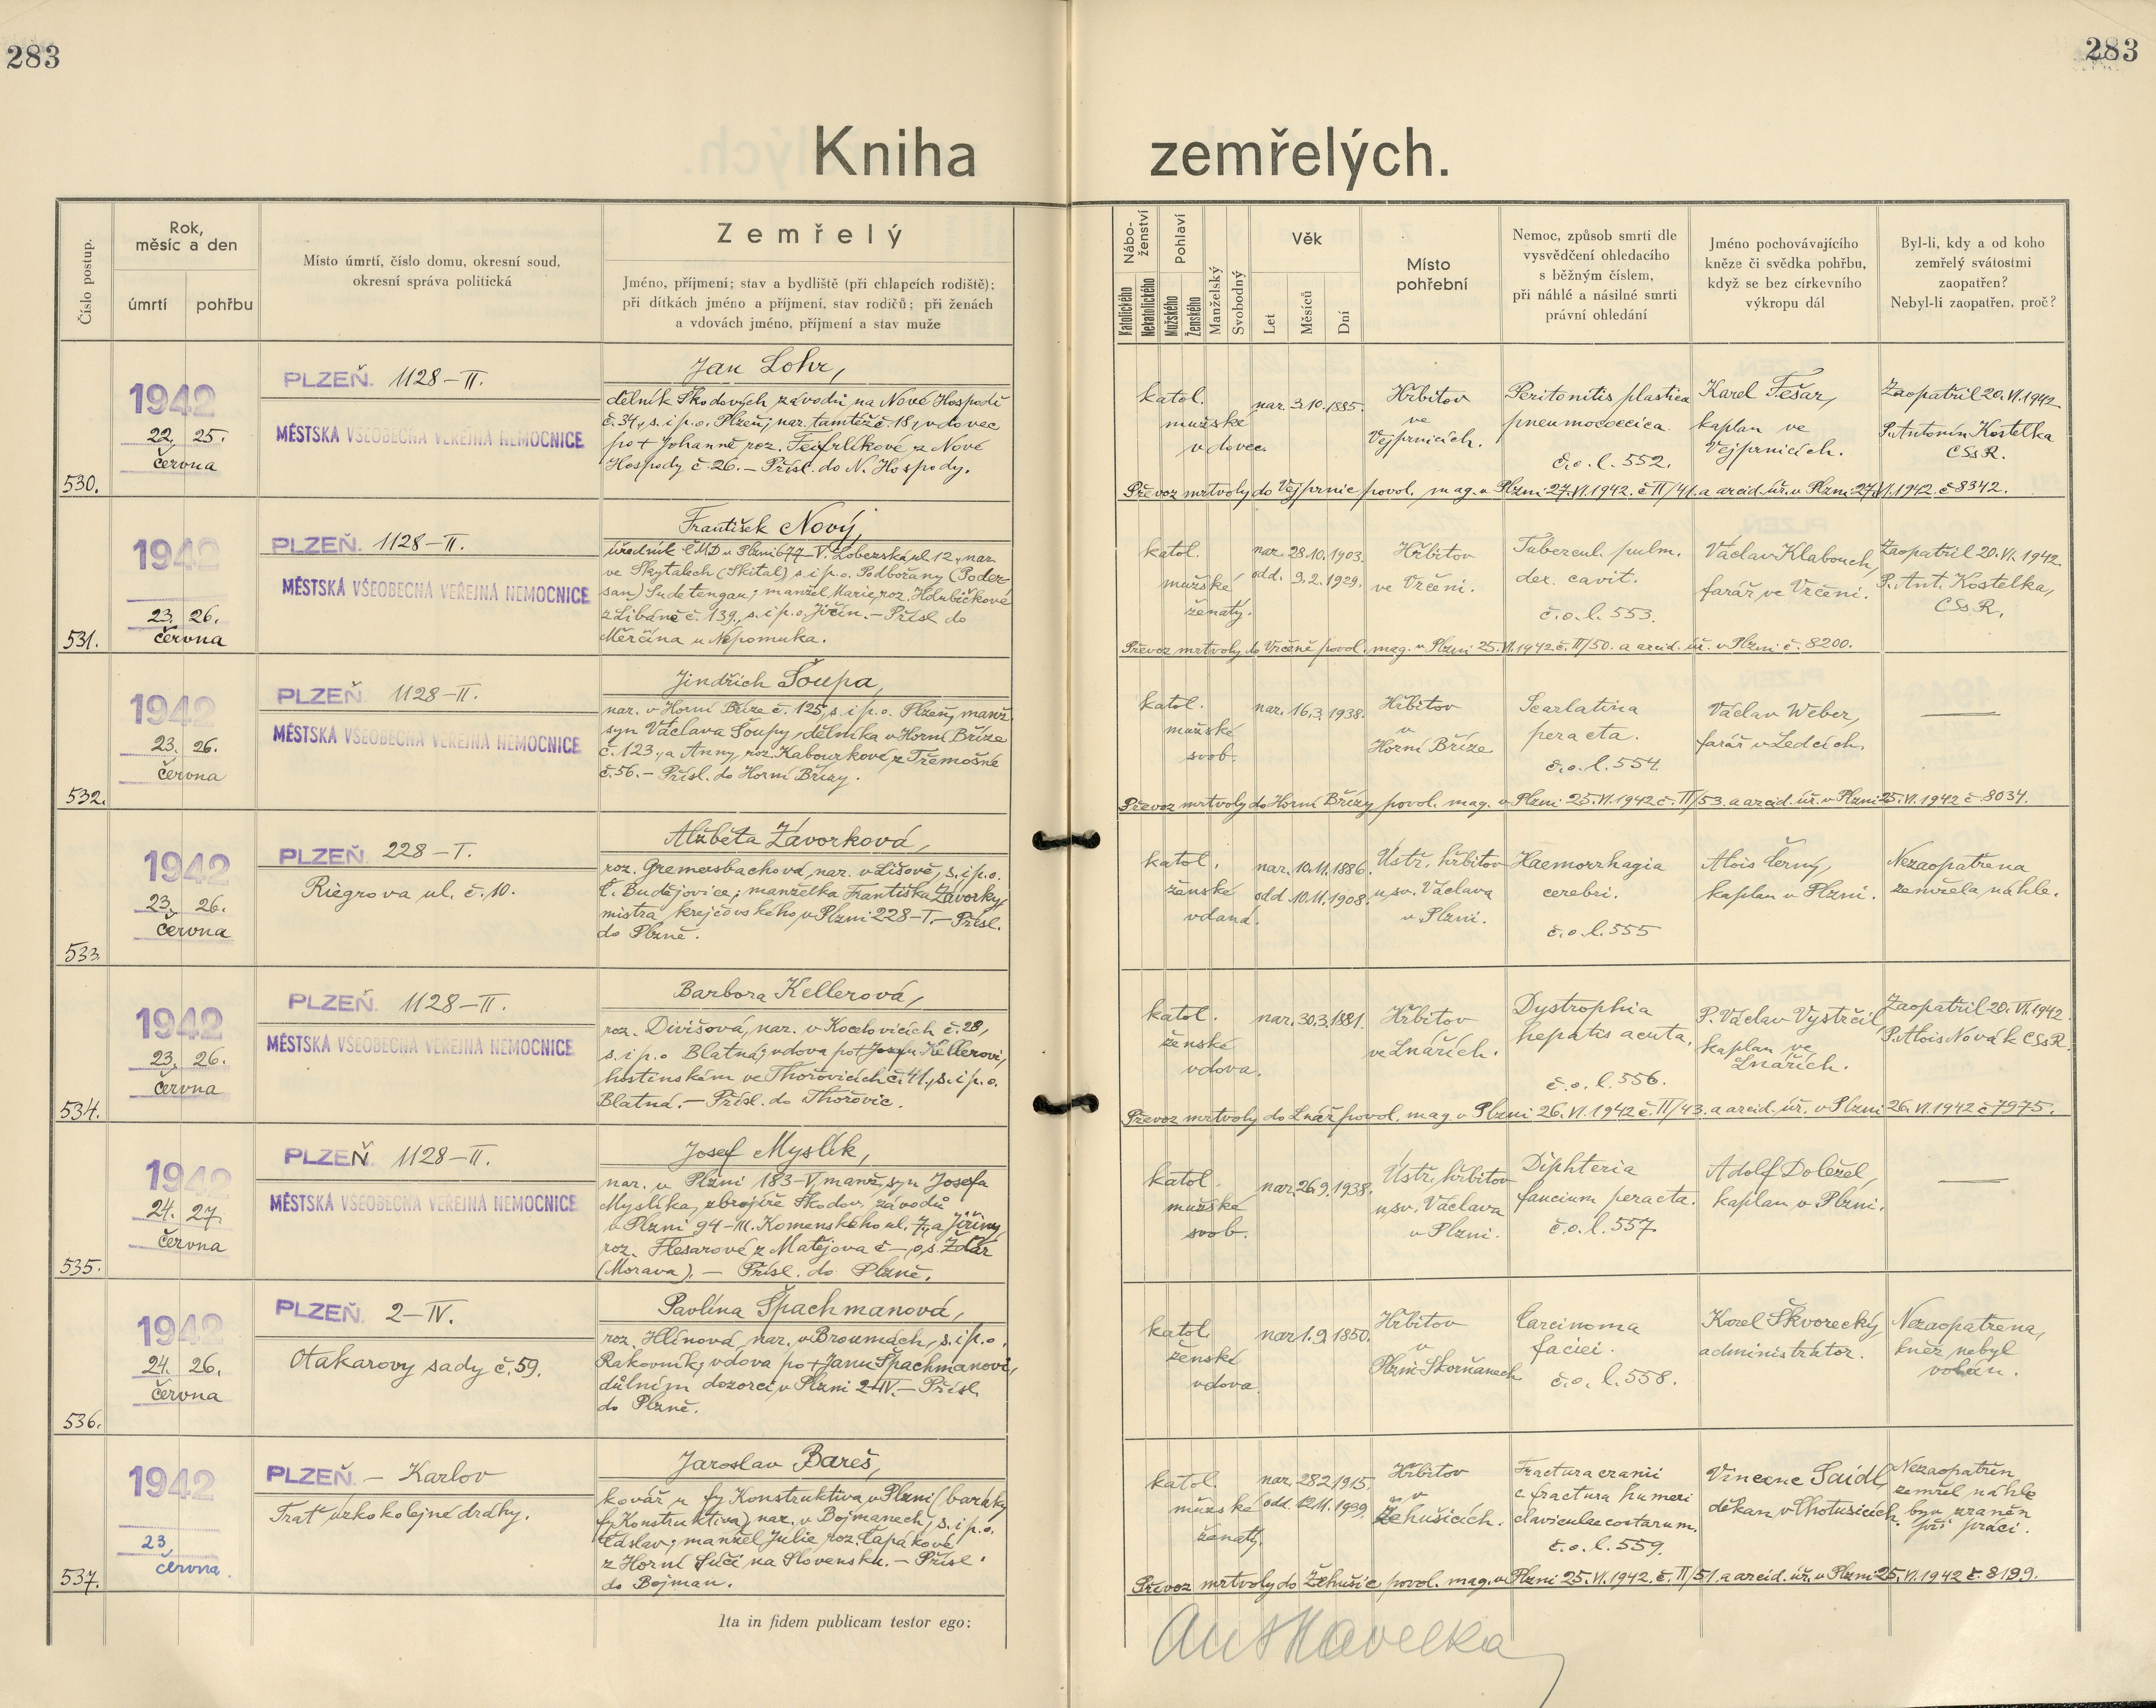 283
283
Kniha zemřelých.
Číslo postup.
Rok, měsíc a den
úmrtí
pohřbu
Místo úmrtí, číslo domu, okresní soud, okresní správa politická
Zemřelý
Jméno, příjmení; stav a bydliště (při chlapcích rodiště);
při dítkách jméno a příjmení, stav rodičů; při ženách
a vdovách jméno, příjmení a stav muže
Nábo-ženství
Katolického
Nekatolického
Pohlaví
Mužského
Ženského
Manželský
Svobodný
Věk
Let
Měsíců
Dní
Místo pohřební
Nemoc, způsob smrti dle
vysvědčení ohledacího
s běžným číslem,
při náhlé a násilné smrti
právní ohledání
Jméno pochovávajícího
kněze či svědka pohřbu,
když se bez církevního
výkropu dál
Byl-li, kdy a od koho
zemřelý svátostmi
zaopatřen?
Nebyl-li zaopatřen, proč?
530.
1942
22. 25.
června
PLZEŇ. 1128-II.
MĚSTSKÁ VŠEOBECNÁ VEŘEJNÁ NEMOCNICE
Jan Lohr,
dělník Škodových závodů na Nové Hospodě
č. 34., s. i p. o. Plzeň, nar. tamtéž č. 18, vdovec
po + Johanně roz. Feifrlíkové z Nové
Hospody č. 26. – Přísl. do N. Hospody.
katol.
mužské
vdovec.
nar. 3.10.1885.
Hřbitov
ve
Vejprnicích.
Peritonitis plastica
pneumococcica.
č.o.l. 552.
Karel Fešar,
kaplan ve
Vejprnicích.
Zaopatřil 20.VI.1942
P. Antonín Kostelka
CSsR.
Převoz mrtvoly do Vejprnic povol. mag. v Plzni 27.VI.1942. č. II/41. a arcid. úř. v Plzni 27.VI.1942. č 8342.
531.
1942
23. 26.
června
PLZEŇ. 1128-II.
MĚSTSKÁ VŠEOBECNÁ VEŘEJNÁ NEMOCNICE
František Nový,
úředník ČMD v Plzni 677-V. Lobezská ul. 12, nar.
ve Skytalech (Skital) s. i p. o. Podbořany (Poder-
san) Sudetengau; manžel Marie, roz. Holubičkové
z Libáně č. 139., s. i p. o. Jičín. – Přísl. do
Měrčína u Nepomuka.
katol.
mužské
ženatý.
nar. 28.10.1903.
odd. 9.2.1929.
Hřbitov
ve Vrčeni.
Tubercul. pulm.
dex. cavit.
č.o.l. 553.
Václav Klabouch,
farář ve Vrčeni.
Zaopatřil 20.VI.1942.
P. Ant. Kostelka,
CSsR.
Převoz mrtvoly do Vrčeně povol. mag. v Plzni 25.VI.1942 č. II/50. a arcid. úř. v Plzni č. 8200.
532.
1942
23. 26.
června
PLZEŇ 1128-II.
MĚSTSKÁ VŠEOBECNÁ VEŘEJNÁ NEMOCNICE
Jindřich Šoupa,
nar. v Horní Bříze č. 125, s. i p. o. Plzeň, manž.
syn Václava Šoupy, dělníka v Horní Bříze
č. 123., a Anny, roz. Kabourkové z Třemošné
č. 56. – Přísl. do Horní Břízy.
katol.
mužské
svob.
nar. 16.3.1938.
Hřbitov
v
Horní Bříze
Scarlatina
peracta.
č.o.l. 554.
Václav Weber,
farář v Ledcích.
—
Převoz mrtvoly do Horní Břízy povol. mag. v Plzni 25.VI.1942 č. II/53. a arcid. úř. v Plzni 25.VI.1942 č 8034.
533.
1942
23. 26.
června
PLZEŇ. 228-I.
Riegrova ul. č. 10.
Alžběta Závorková,
roz. Gremersbachová, nar. v Lišově, s. i p. o.
Č. Budějovice; manželka Františka Závorky,
mistra krejčovského, v Plzni 228-I. – Přísl.
do Plzně.
katol.
ženské
vdaná.
nar. 10.11.1886.
odd. 10.11.1908.
Ústř. hřbitov
u sv. Václava
v Plzni.
Haemorrhagia
cerebri.
č.o.l. 555
Alois Černý,
kaplan v Plzni.
Nezaopatřena
zemřela náhle.
534.
1942
23. 26.
června
PLZEŇ. 1128-II.
MĚSTSKÁ VŠEOBECNÁ VEŘEJNÁ NEMOCNICE
Barbora Kellerová,
roz. Divišová, nar. v Kocelovicích č. 28,
s. i p. o Blatná; vdova po + Josefu Kellerovi,
hostinském ve Thořovicích č. 41., s. i p. o.
Blatná. – Přísl. do Thořovic.
katol.
ženské
vdova.
nar. 30.3.1881.
Hřbitov
ve Lnářích.
Dystrophia
hepatis acuta.
č.o.l. 556.
P. Václav Vystrčil,
kaplan ve
Lnářích.
Zaopatřil 20.VI.1942.
P. Alois Novák CSsR.
Převoz mrtvoly do Lnář povol. mag. v Plzni 26.VI.1942 č. II/43. a arcid. úř. v Plzni 26.VI.1942 č 7975.
535.
1942
24. 27.
června
PLZEŇ 1128-II.
MĚSTSKÁ VŠEOBECNÁ VEŘEJNÁ NEMOCNICE
Josef Myslík,
nar. v Plzni 183-V, manž. syn Josefa
Myslíka, zbrojíře Škodov. závodů
v Plzni 94-III. Komenského ul. 7, a Jiřiny,
roz. Flesarové z Matějova č –, o. s. Žďár
(Morava). – Přísl. do Plzně.
katol.
mužské
svob.
nar. 26.9.1938.
Ústř. hřbitov
u sv. Václava
v Plzni.
Diphteria
faucium peracta.
č.o.l. 557.
Adolf Doležel,
kaplan v Plzni.
—
536.
1942
24. 26.
června
PLZEŇ. 2-IV.
Otakarovy sady č. 59.
Pavlína Špachmanová,
roz. Hlínová, nar. v Broumách, s. i p. o.
Rakovník; vdova po + Janu Špachmanovi,
důlním dozorci, v Plzni 2-IV. – Přísl.
do Plzně.
katol.
ženské
vdova.
nar. 1.9.1850.
Hřbitov
v
Plzni-Skvrňanech
Carcinoma
faciei.
č.o.l. 558.
Karel Škvorecký,
administrátor.
Nezaopatřena,
kněz nebyl
volán.
537.
1942
23.
června.
PLZEŇ. – Karlov
Trať úzkokolejné dráhy.
Jaroslav Bareš,
kovář u fy Konstruktiva, v Plzni (baráky
fy Konstruktiva) nar. v Bojmanech, s. i p. o.
Čáslav; manžel Julie roz. Čapákové
z Horní Súči na Slovensku. – Přísl.
do Bojman.
katol.
mužské
ženatý.
nar. 28.2.1915.
odd. 12.11.1939.
Hřbitov
v
Žehušicích.
Fractura cranii
c fractura humeri
claviculae costarum.
č.o.l. 559.
Vincenc Saidl,
děkan v Chotusicích.
Nezaopatřen
zemřel náhle
byv zraněn
při práci.
Převoz mrtvoly do Žehušic povol. mag. v Plzni 25.VI.1942. č. II/51. a arcid. úř. v Plzni 25.VI.1942 č. 8199.
Ita in fidem publicam testor ego:
Ant Havelka